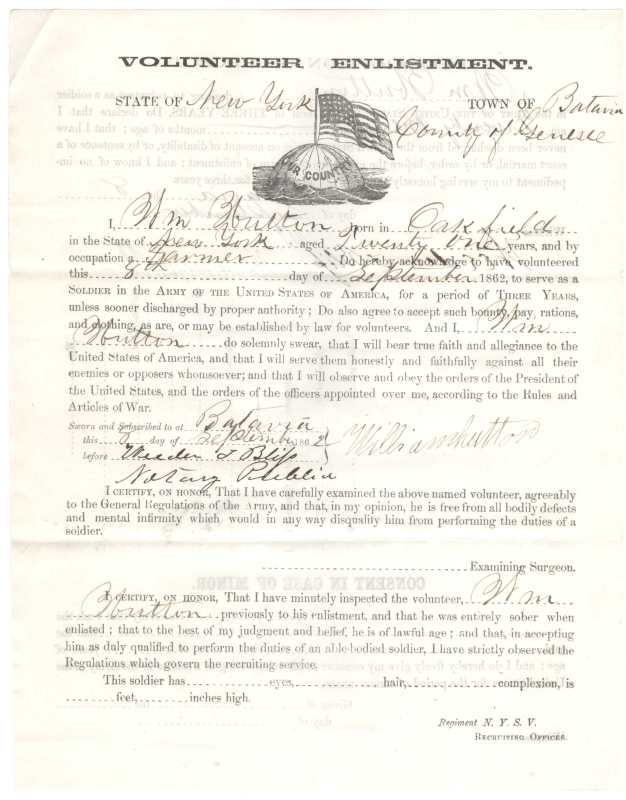 VOLUNTEER ENLISTMENT.
STATE OF New York TOWN OF Batavia
County of Genesee
OUR COUNTRY
I, Wm Hutton born in Oakfield
in the State of New York aged Twenty One years, and by
occupation a Farmer Do hereby acknowledge to have volunteered
this 8th day of September 1862, to serve as a
Soldier in the Army of the United States of America, for a period of Three Years,
unless sooner discharged by proper authority; Do also agree to accept such bounty, pay, rations,
and clothing, as are, or may be established by law for volunteers. And I, Wm
Hutton do solemnly swear, that I will bear true faith and allegiance to the
United States of America, and that I will serve them honestly and faithfully against all their
enemies or opposers whomsoever; and that I will observe and obey the orders of the President of
the United States, and the orders of the officers appointed over me, according to the Rules and
Articles of War.
Sworn and Subscribed to at Batavia
this 8 day of September 1862
before Bliss
William Hutton
Notary Public
I certify, on honor, That I have carefully examined the above named volunteer, agreeably
to the General Regulations of the Army, and that, in my opinion, he is free from all bodily defects
and mental infirmity which would in any way disqualify him from performing the duties of a
soldier.
Examining Surgeon.
I certify, on honor, That I have minutely inspected the volunteer, Wm
Hutton previously to his enlistment, and that he was entirely sober when
enlisted; that to the best of my judgment and belief, he is of lawful age; and that, in accepting
him as duly qualified to perform the duties of an able-bodied soldier, I have strictly observed the
Regulations which govern the recruiting service.
This soldier has eyes, hair, complexion, is
feet, inches high.
Regiment N. Y. S. V.
Recruiting Officer.